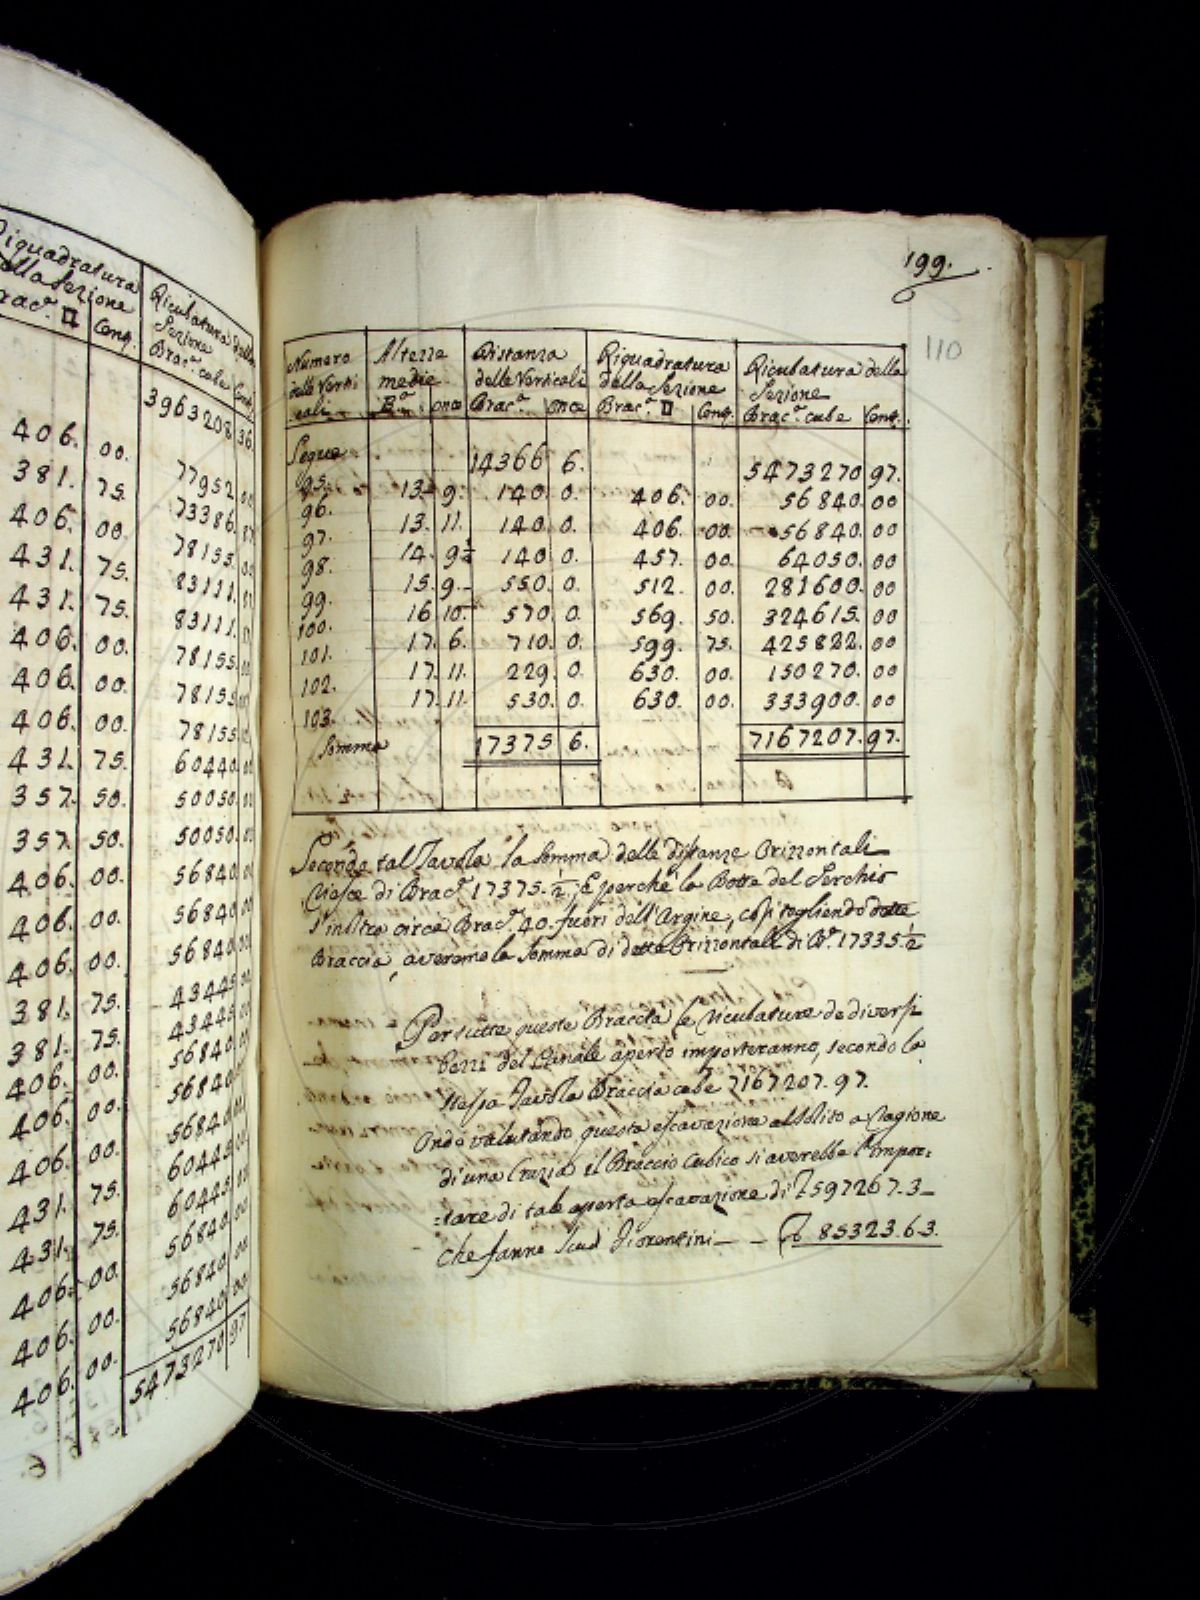 Riquadratura
della Sezione
Brac.ª □ Cent.
Ricubatura della
Sezione
Brac.ª cube Cent.
3963208 36.
406. 00. 77952 00
381. 75. 73386. 87
406. 00. 78155. 00
431. 75. 83111. 87
431. 75. 83111.
406. 00. 78155.
406. 00. 78155
406. 00. 78155
431. 75. 60440
357. 50. 50050
357. 50. 50050
406. 00. 56840
406. 00. 56840
406. 00. 56840 00
381. 75. 43445 00
381. 75. 43445 00
406. 00. 56840
406. 00. 56840
406. 00. 56840
431. 75. 60445
431. 75. 60445
406. 00. 56840
406. 00. 56840 00
406. 00. 56840 00
5473270 97
199.
110
Numero
delle Verti
cali
Altezze
medie
B.ª once
Distanza
delle Verticali
Brac.ª once
Riquadratura
della Sezione
Brac.ª □ Cent.
Ricubatura della
Sezione
Brac.ª cube Cent.
Segue 14366 6. 5473270 97.
95. 13. 9. 140. 0. 406. 00. 56840. 00
96. 13. 11. 140. 0. 406. 00. 56840. 00
97. 14. 9½ 140 0. 457. 00. 64050. 00
98. 15. 9. 550. 0. 512. 00. 281600. 00
99. 16 10. 570. 0. 569. 50. 324615. 00
100. 17. 6. 710. 0. 599. 75. 425822. 00
101. 17. 11. 229. 0. 630. 00. 150270. 00
102. 17. 11. 530. 0. 630. 00. 333900. 00
103.
Somma 17375 6. 7167207. 97.
Secondo tal Tavola la somma delle distanze Orizzontali
riesce di Brac.ª 17375. ½; E perchè la Botte del Serchio
s'inoltra circa Brac.ª 40. fuori dell'Argine, così togliendo dette
Braccia, averemo la somma di dette Orizzontali di B.ª 17335.½
Per tutte queste Braccia le ricubature de diversi
Pezzi del Canale aperto importeranno, secondo la
stessa Tavola Braccia cube 7167207. 97.
Onde valutando questa escavazione al solito a ragione
di una Crazia il Braccio Cubico si averebbe l'impor=
=tare di tale aperta escavazione di 597267. 3_
Che fanno Scudi Fiorentini _ _ 85323. 6 3.